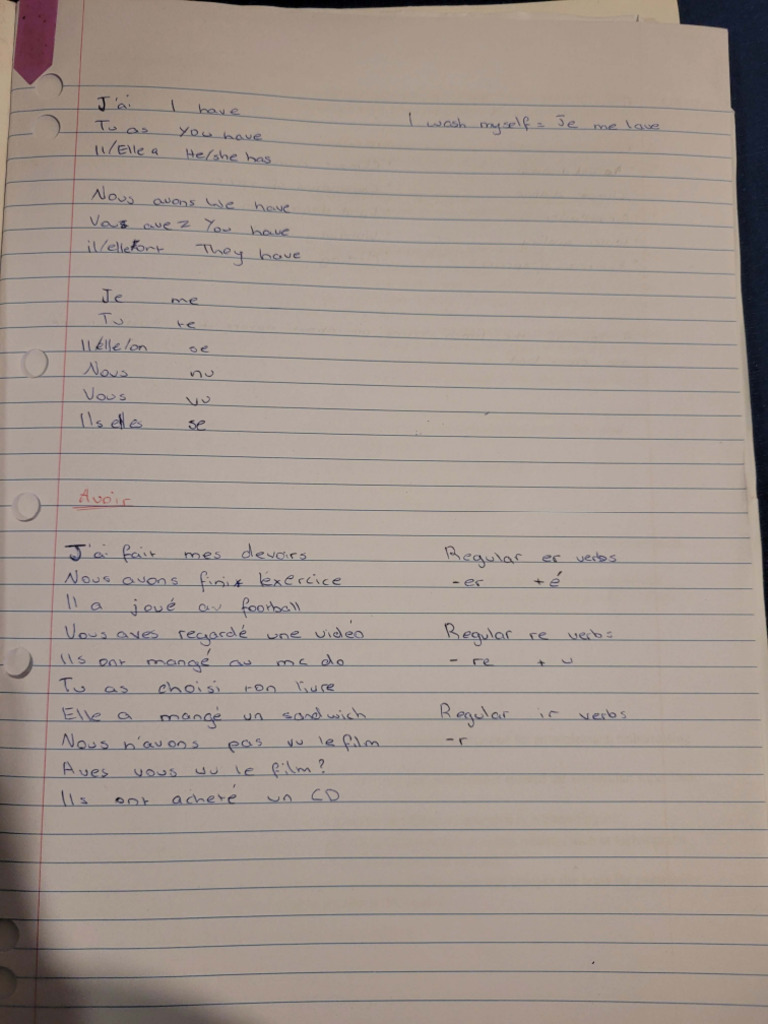 J'ai I have
I wash myself = Je me lave
Tu as You have
Il/Elle a He/she has
Nous avons We have
Vous avez You have
il/elle ont They have
Je me
Tu te
Il/elle/on se
Nous nu
Vous vu
Ils elles se
Avoir
J'ai fait mes devoirs
Regular er verbs
Nous avons fini l'exercice
-er +é
Il a joué au football
Vous aves regardé une vidéo
Regular re verbs
Ils ont mangé au mc do
- re + u
Tu as choisi ton livre
Elle a mangé un sandwich
Regular ir verbs
Nous n'avons pas vu le film
-r
Aves vous vu le film?
Ils ont acheté un CD